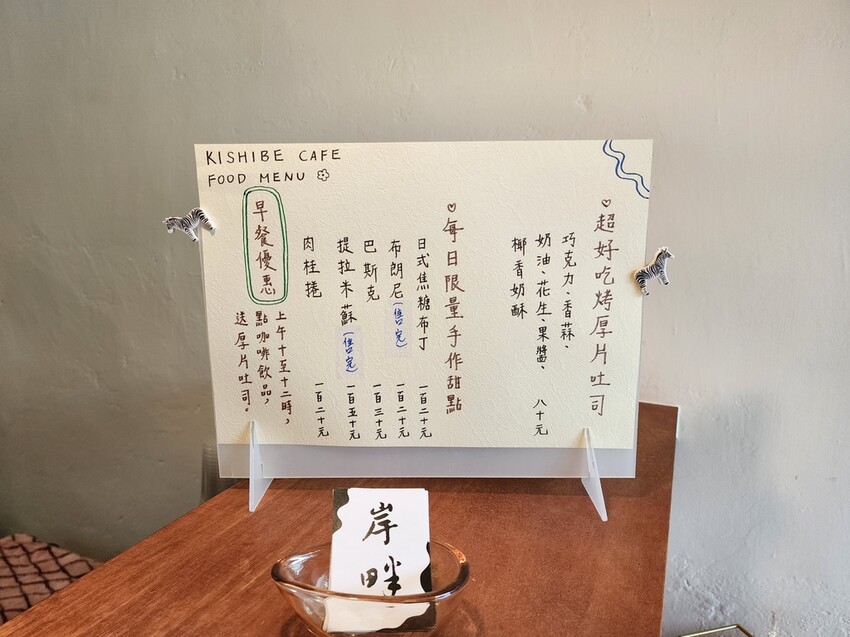 KISHIBE CAFE
FOOD MENU
♡超好吃烤厚片吐司
巧克力、香蒜、
奶油、花生、果醬、 八十元
椰香奶酥
♡每日限量手作甜點
日式焦糖布丁 一百二十元
布朗尼(售完) 一百二十元
巴斯克 一百三十元
提拉米蘇(售完) 一百五十元
肉桂捲 一百二十元
早餐優惠
上午十至十二時,
點咖啡飲品,
送厚片吐司。
岸畔